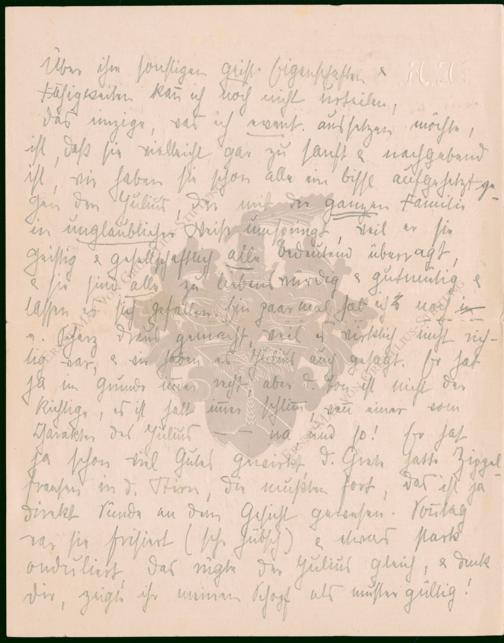 Über ihre sonstigen geist. Eigenschaften &
Fähigkeiten kan ich noch nicht urteilen,
das einzige, was ich event. aussetzen möchte,
ist, daß sie vielleicht gar zu sanft & nachgebend
ist, wir haben sie schon alle ein bissl aufgehetzt ge-
gen den Julius, der mit der ganzen Familie
in unglaublicher Weise umspringt, weil er sie
geistig & gesellschaftlich alle bedeutend überragt,
& sie sind alle so liebenswürdig & gutmütig &
lassen es sich gefallen. Ein paarmal hab ich noch
Scherz gemacht, weil es wirklich nicht rich-
tig war, & ihm es Julius auch gesagt. Er hat
ja im Grunde immer recht, aber der Ton ist nicht der
Richtige, es ist halt immer schlimm, wen einer vom
Charakter des Julius — na und so! Er hat
ja schon viel Gutes gewirkt d. Grete hatte Zippel-
fransen in d. Stirn, die mußten fort, das ist ja
direkt Sünde an dem Gesicht gewesen. Vormittag
war sie frisiert (sehr hübsch) & etwas stark
onduliert, das rügte der Julius gleich, & denk
dir, zeigte ihr meinen Schopf als mustergültig!